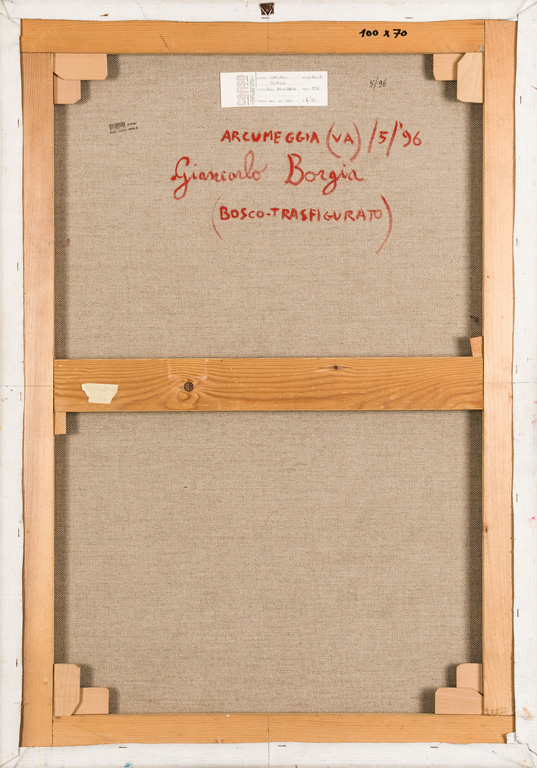 100 x 70
5/96
ARCUMEGGIA (VA) /5/'96
Giancarlo Borgia
(BOSCO-TRASFIGURATO)